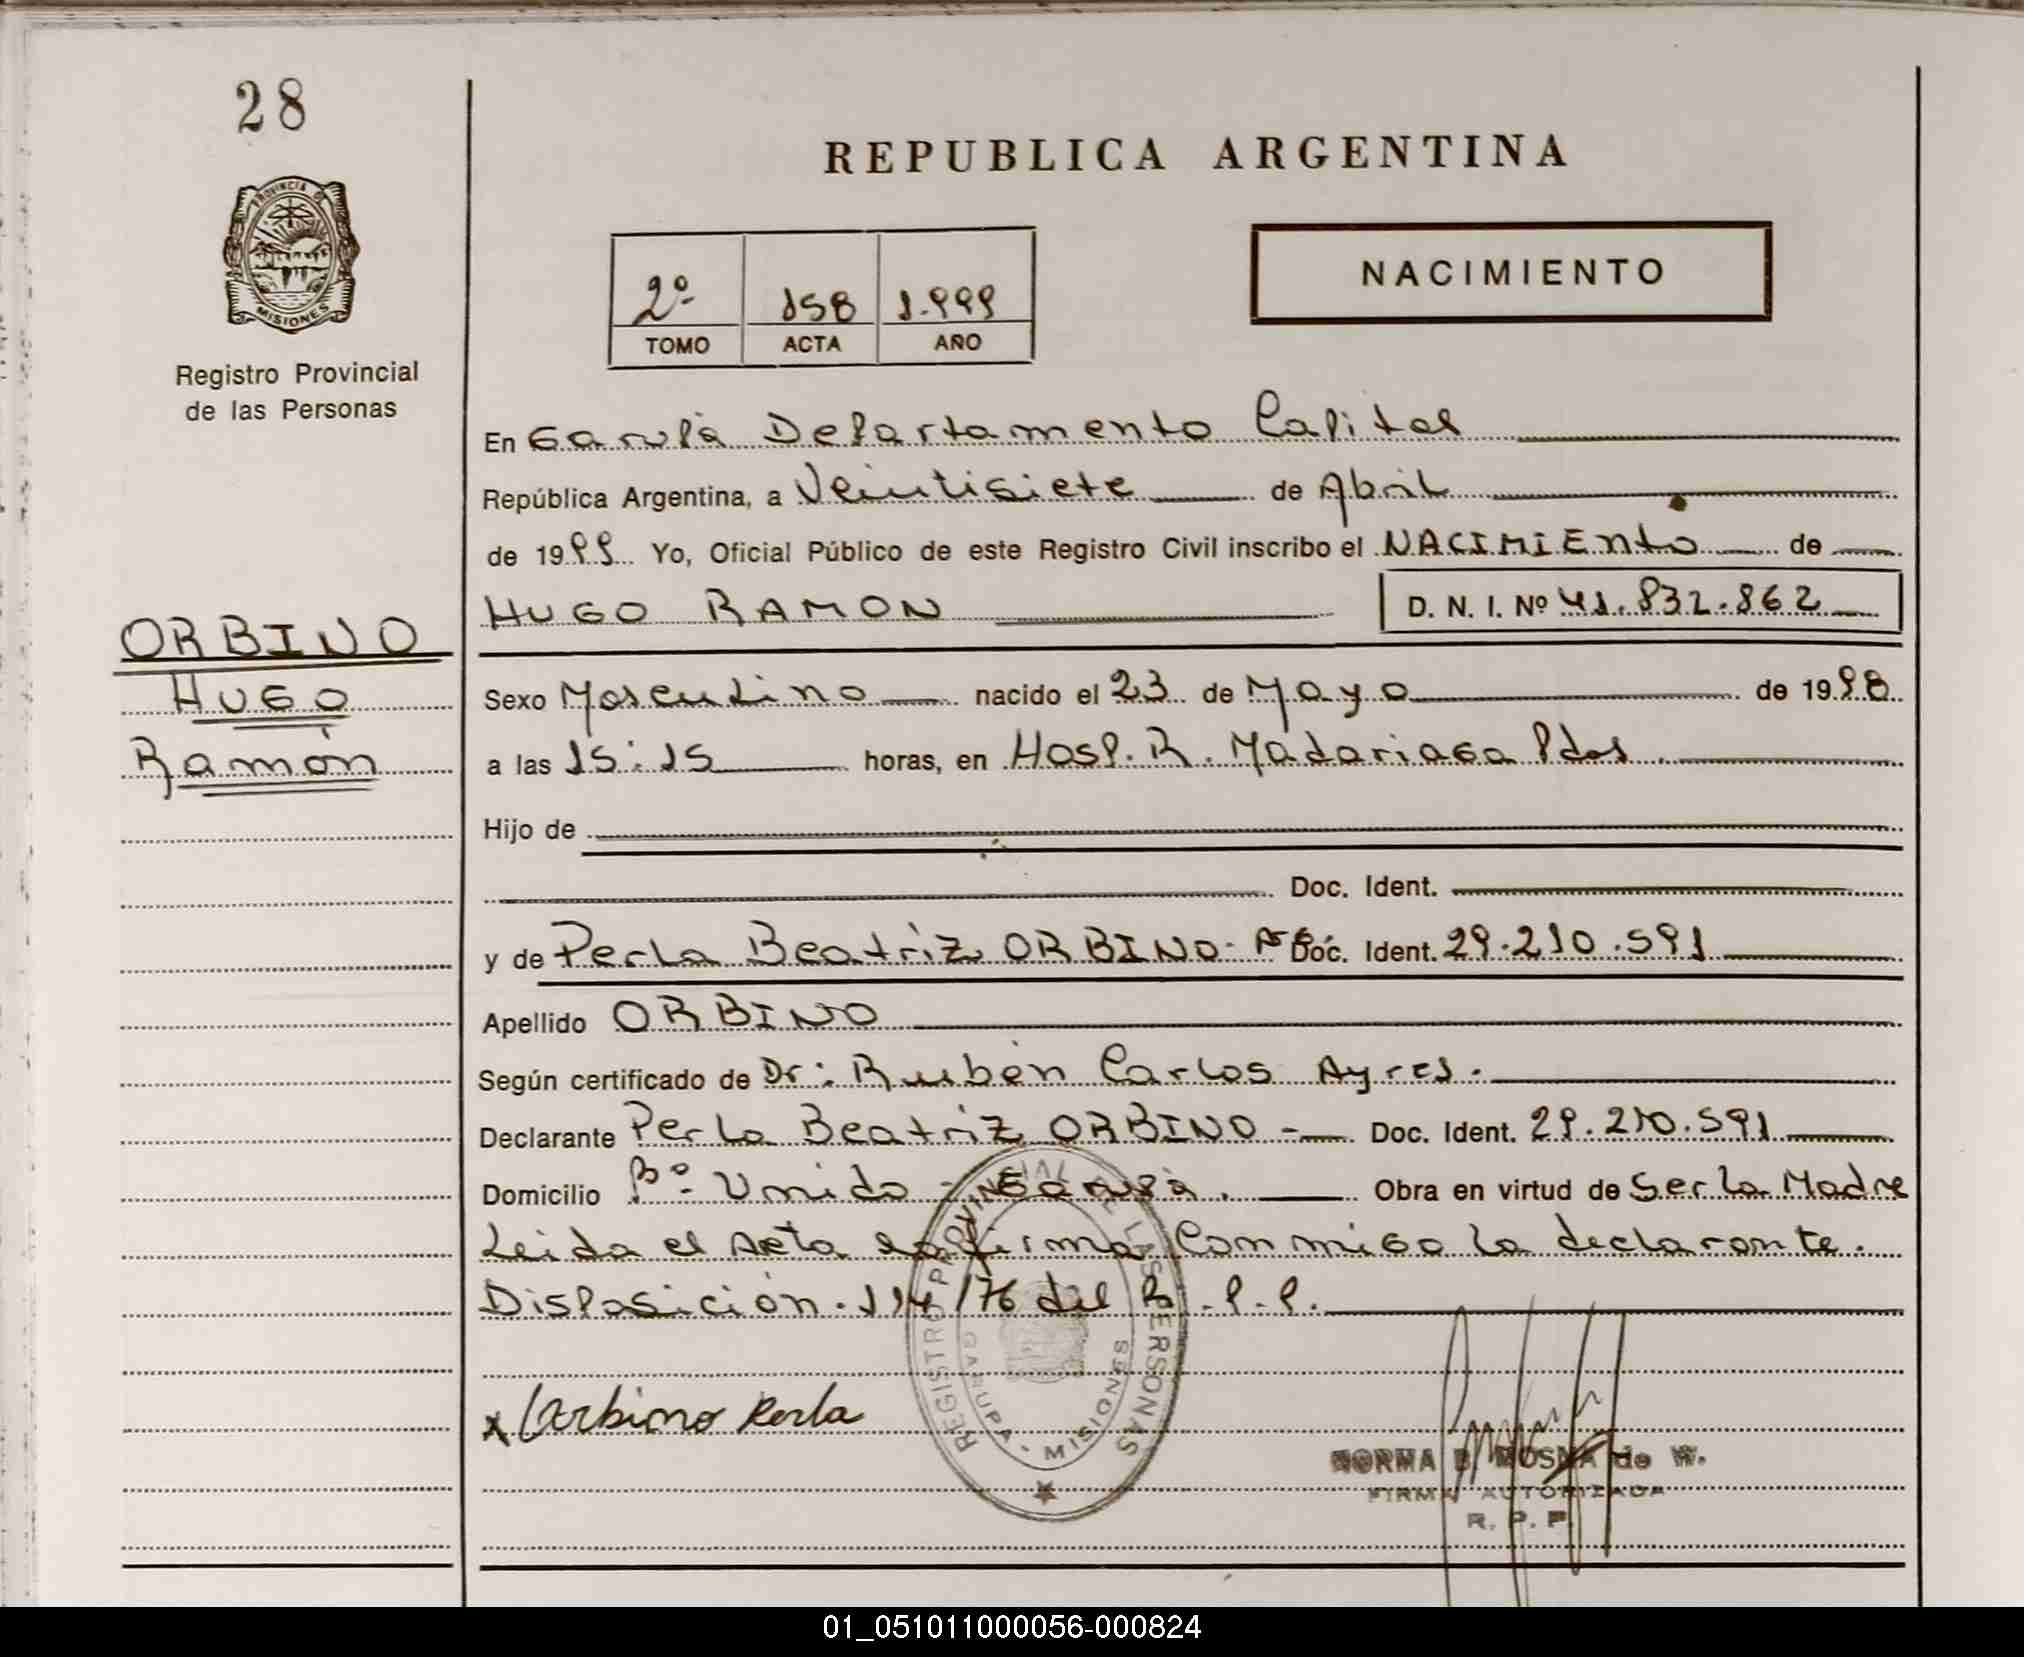 28
REPUBLICA ARGENTINA
PROVINCIA DE
MISIONES
Registro Provincial
de las Personas
2º 158 1.999
TOMO ACTA AÑO
NACIMIENTO
En Garupá Departamento Capital
República Argentina, a Veintisiete de Abril
de 1999 Yo, Oficial Público de este Registro Civil inscribo el NACIMIENTO de
HUGO RAMON D. N. I. Nº 41.832.862
ORBINO
Hugo
Ramón
Sexo Masculino nacido el 23 de Mayo de 1998
a las 15:15 horas, en Hosp. R. Madariaga Pdas.
Hijo de
Doc. Ident.
y de Perla Beatriz ORBINO. Doc. Ident. 29.210.591
Apellido ORBINO
Según certificado de Dr: Rubén Carlos Ayres.
Declarante Perla Beatriz ORBINO - Doc. Ident. 29.210.591
Domicilio Bº Unido - Garupá. Obra en virtud de Ser la Madre
Leida el acta la firma Conmigo la declarante.
Disposición. 114/76 del R.P.P.
REGISTRO PROVINCIAL DE LAS PERSONAS
GARUPA - MISIONES
x Orbino Perla
NORMA B. MOSNA de W.
FIRMA AUTORIZADA
R. P. P.
01_051011000056-000824